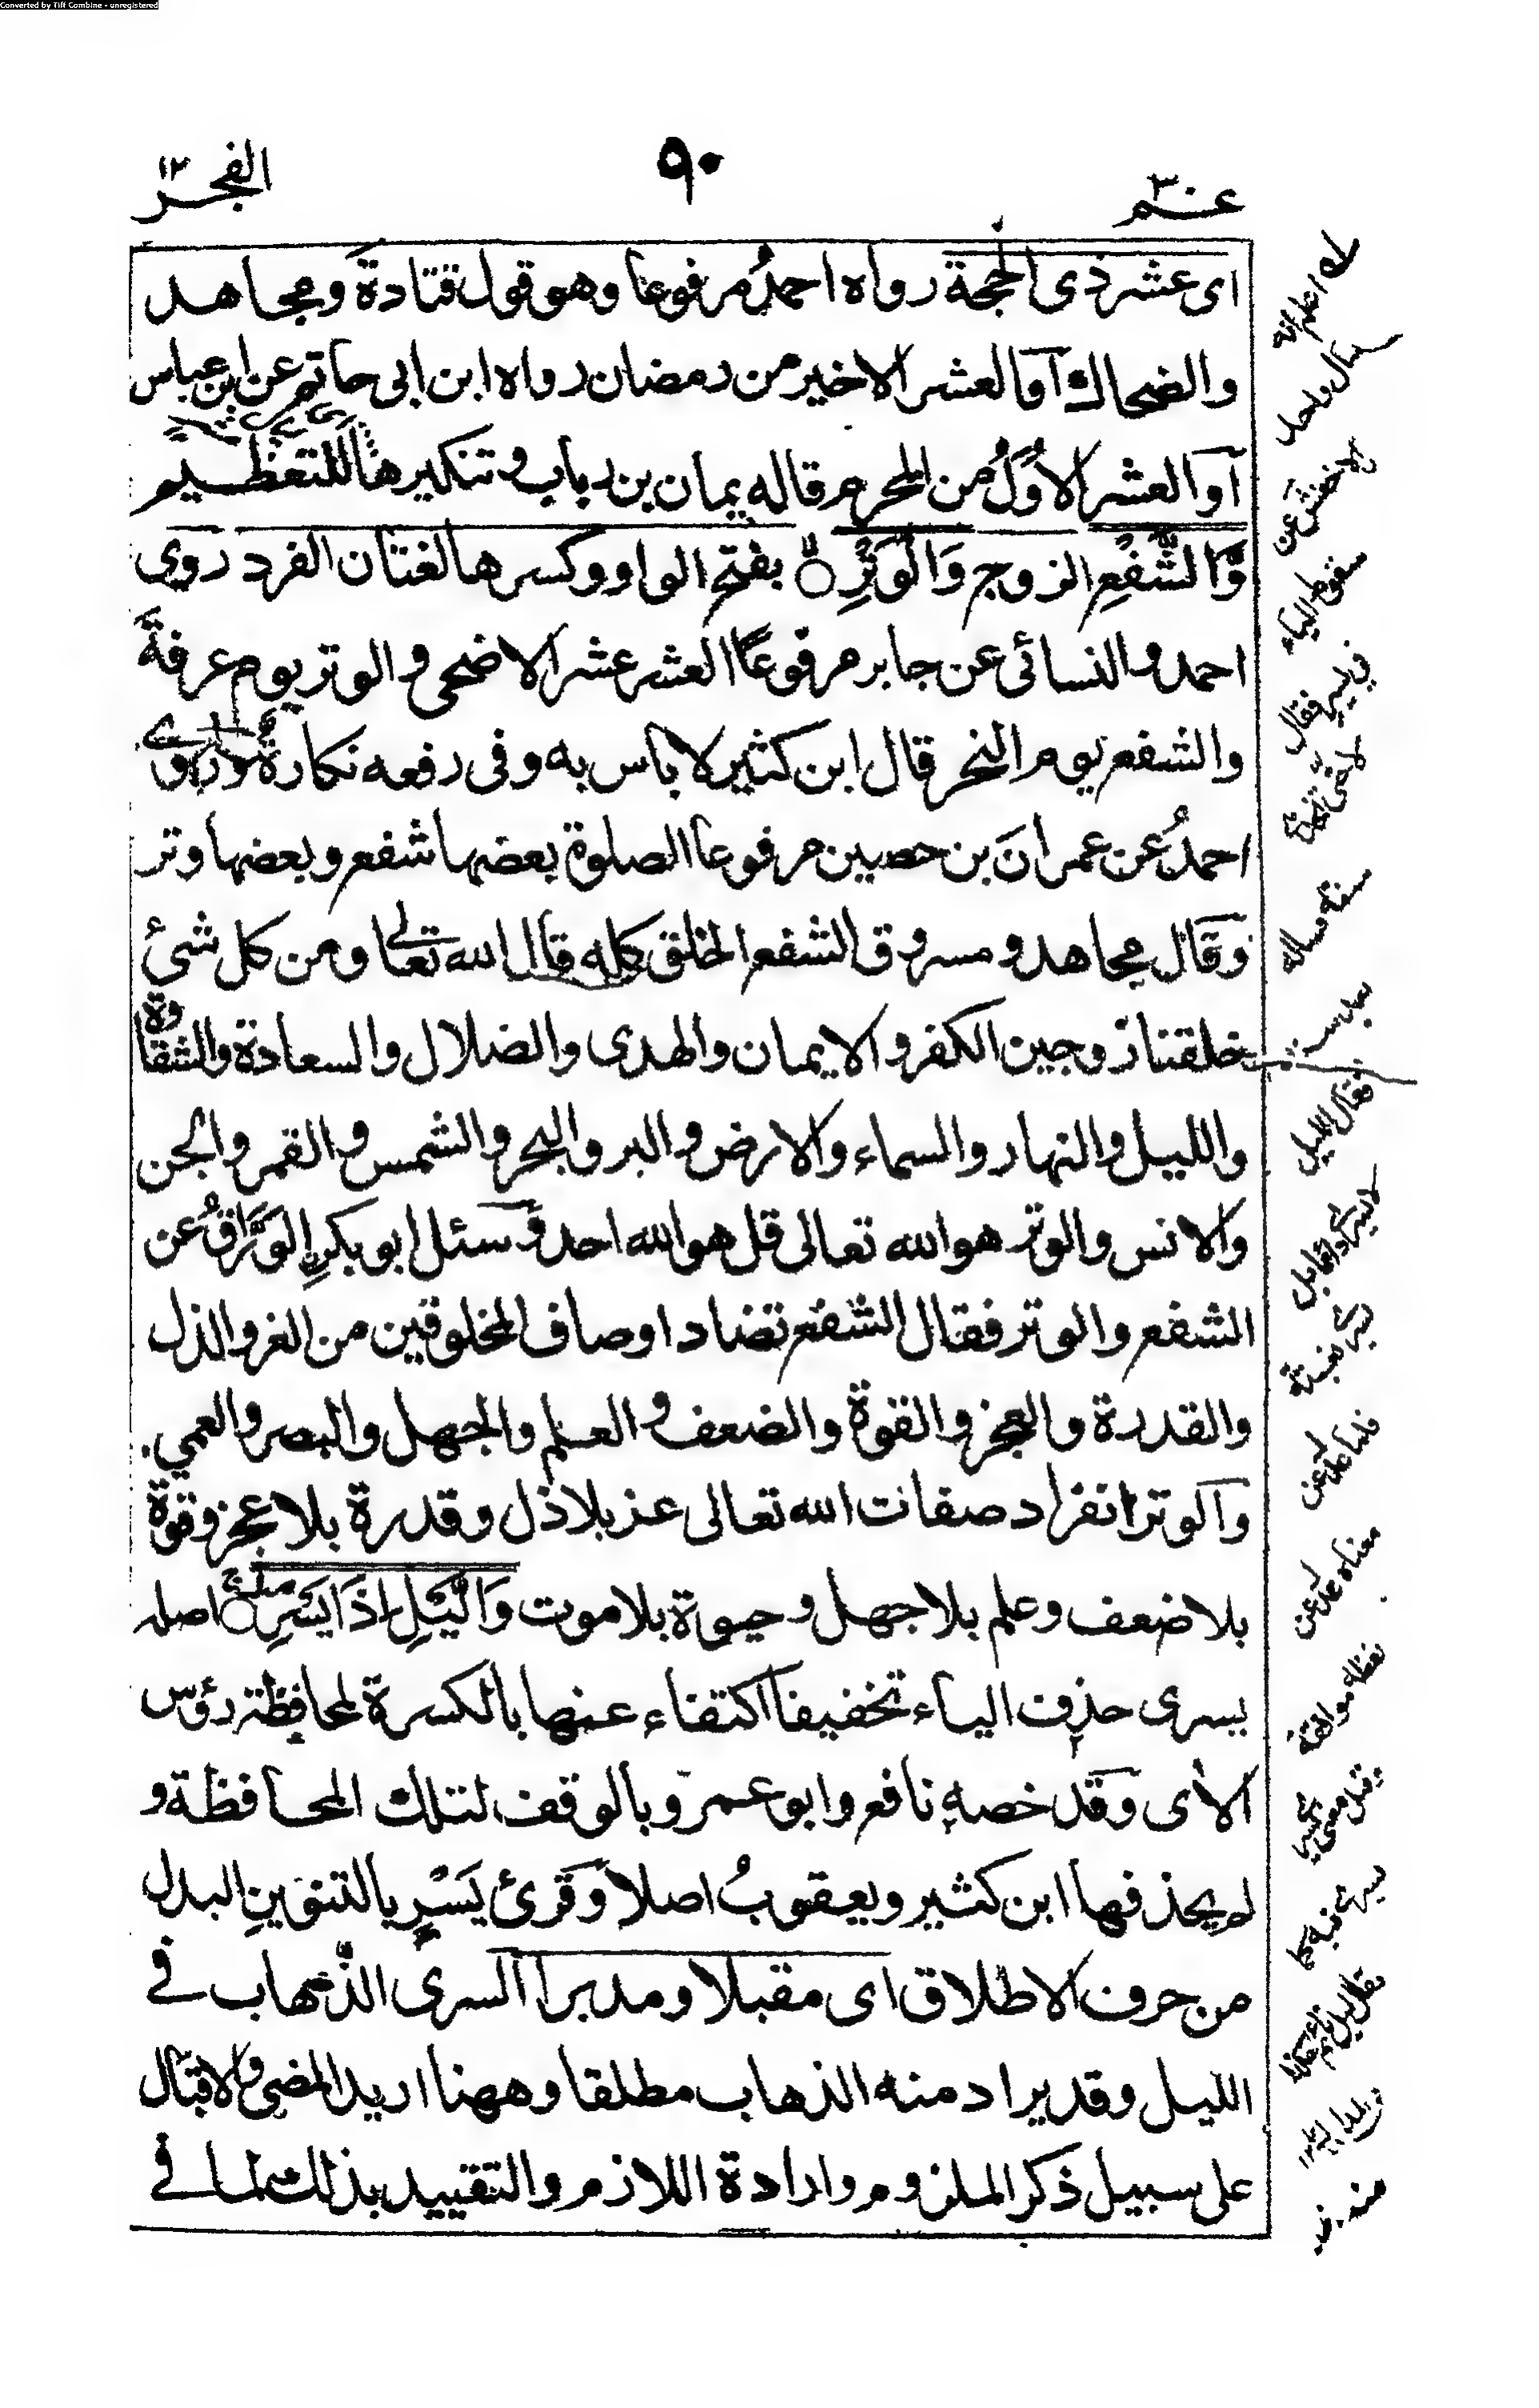 Converted by Tiff Combine - unregistered
عـم ٣٠
٩٠
الفجر ١٢
اى عشر ذى الحجة رواه احمدُ مرفوعا وهو قول قتادةَ ومجاهد
والضحاك اَو العشر الاخير من رمضان رواه ابن ابى حاتم عن ابن عباس
اَو العشر الاُوَلُ من المحرم قاله يمان بن رباب وتنكيرها للتعظيم
وَّالشَّفْعِ الزوج وَالْوَتْرِ ۙ بفتح الواو وكسرها لغتان الفرد روى
احمد والنسائى عن جابر مرفوعًا العشر عشر الاضحى والوتر يوم عرفةَ
والشفع يوم النحر قال ابن كثير لا بأس به وفى رفعه نكارة وروى
احمدُ عن عمرانَ بن حصين مرفوعا الصلوة بعضها شفع وبعضها وتر
وَقَال مجاهد ومسروق الشفع الخلق كله قال الله تعالى ومن كل شئ
خلقنا زوجين الكفر والايمان والهدى والضلال والسعادة والشقاوة
والليل والنهار والسماء والارض والبر والبحر والشمس والقمر والجن
والانس والوتر هو الله تعالى قل هو الله احد وَسئل ابو بكرِ الوَرَّاقُ عن
الشفع والوتر فقال الشفع تضاد اوصاف المخلوقين من العز والذل
والقدرة والعجز والقوة والضعف والعلم والجهل والبصر والعمى
وَالوتر انفراد صفات الله تعالى عز بلا ذل وقدرة بلا عجز وقوة
بلا ضعف وعلم بلا جهل وحيوة بلا موت وَالَّيْلِ اِذَا يَسْرِ ۚ اصله
يسرى حذف الياء تخفيفا اكتفاء عنها بالكسرة لمحافظة رؤس
الاٰى وَقَد خصه نافع وابو عمرو بالوقف لتلك المحافظة و
لم يحذفها ابن كثير ويعقوبُ اصلا وَقرئ يَسْرٍ بالتنوينِ البدل
من حرف الاطلاق اى مقبلا ومدبرا السرى الذَّهاب فى
الليل وقد يراد منه الذهاب مطلقا وههنا اريد المضى والاقبال
على سبيل ذكر الملزوم وارادة اللازم والتقييد بذلك لما فى
سأل واحد
الاخفش عن
سقوط الياء
فى يسر فقال
فقال الليل
لا يسرى